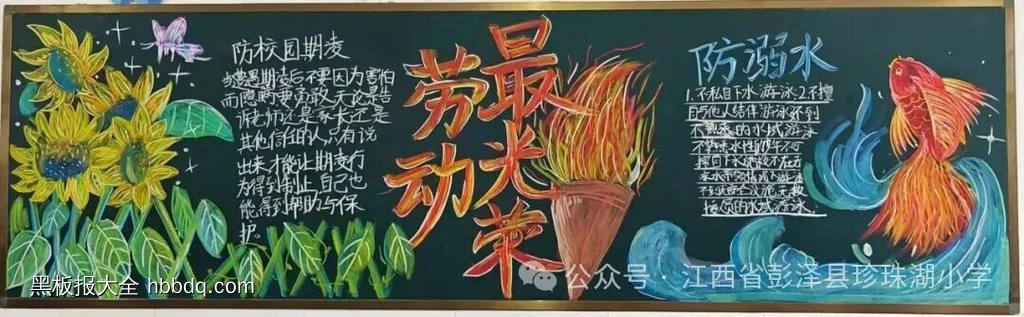 防校园欺凌
当遭遇欺凌后不要因为害怕
而隐瞒要勇敢,无论是告
诉老师还是家长还是
其他信任的人,只有说
出来才能让欺凌行
为得到制止,自己也
能得到帮助与保
护。
劳动
最光荣
防溺水
1.不私自下水游泳2.不擅
自与他人结伴游泳不到
不熟悉的水域游泳
不熟悉水性的学生不可
擅自下水施救不在无
不到无安全设施、无救
援人员的水域游泳.
黑板报大全 hbbdq.com
公众号·江西省彭泽县珍珠湖小学